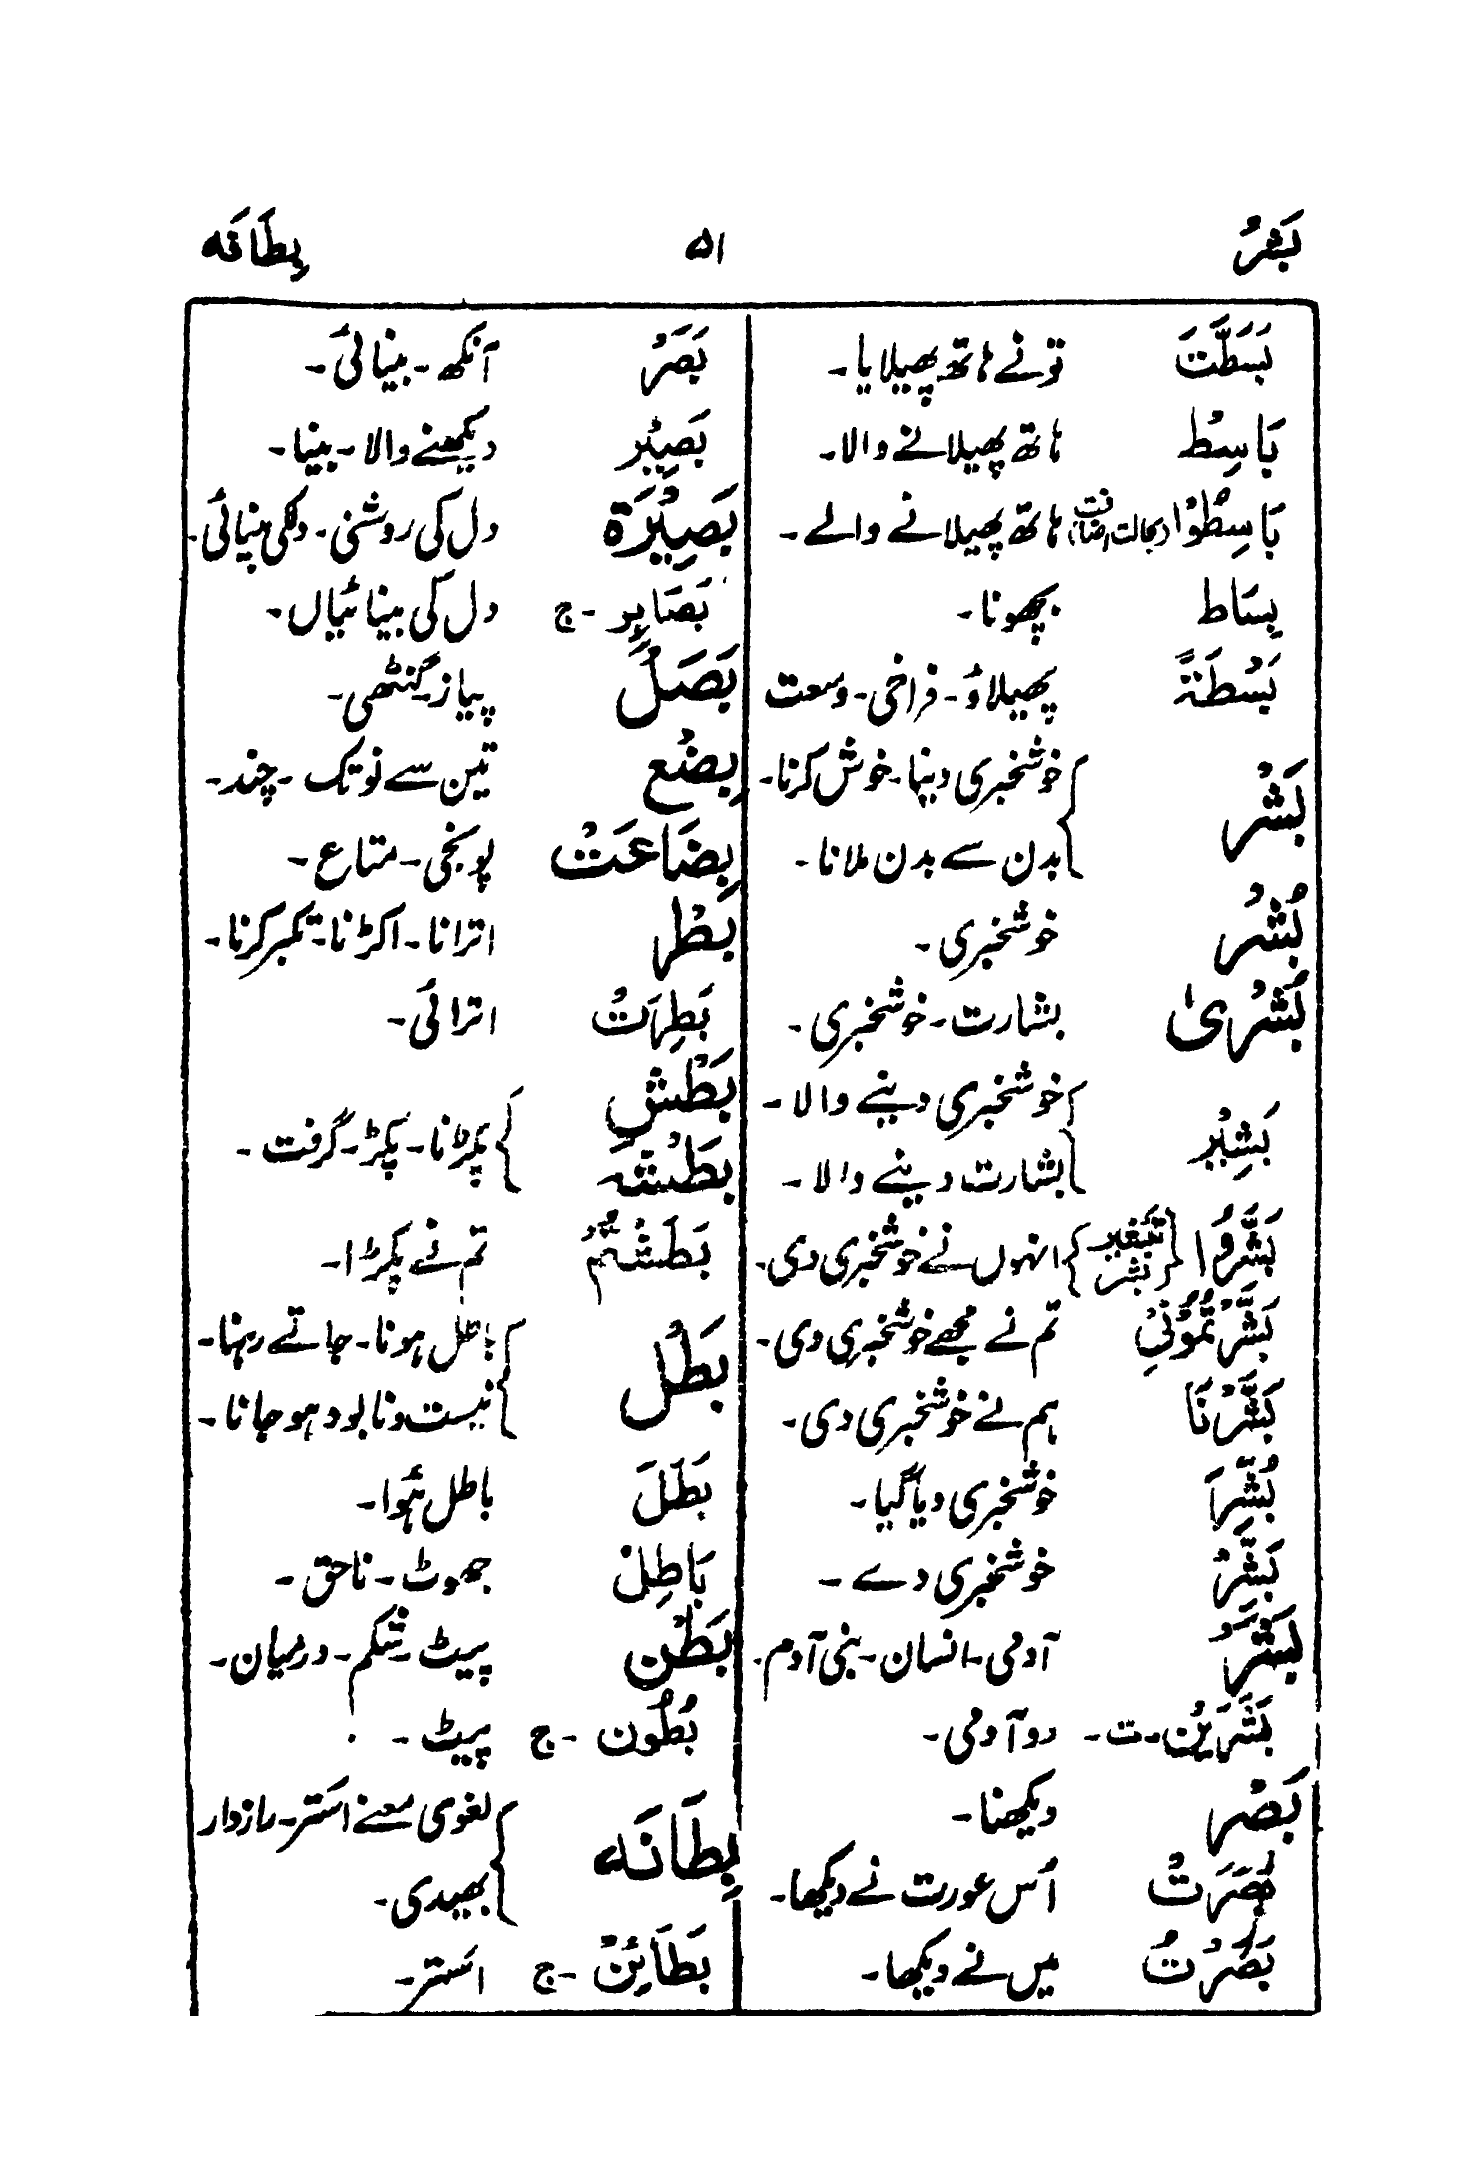 بَشْرُ ۵۱ بِطَانَه
بَسَطْتَّ تونے ہاتھ پھیلایا۔
بَاسِطُ ہاتھ پھیلانے والا۔
بَاسِطُوْا (بحالت اضافت) ہاتھ پھیلانے والے۔
بِسَاط بچھونا۔
بَسْطَةً پھیلاؤ۔ فراخی۔ وسعت
بَشْر خوشخبری دینا۔ خوش کرنا۔
بدن سے بدن ملانا۔
بُشْر خوشخبری۔
بُشْریٰ بشارت۔ خوشخبری۔
بَشِیْر خوشخبری دینے والا۔
بشارت دینے والا۔
بَشَّرُوْا انہوں نے خوشخبری دی۔
بَشَّرْتُمُوْنِیْ تم نے مجھے خوشخبری دی۔
بَشَّرْنَا ہم نے خوشخبری دی۔
بُشِّرَ خوشخبری دیا گیا۔
بَشِّرْ خوشخبری دے۔
بَشَرٌ آدمی۔ انسان۔ بنی آدم۔
بَشَرَیْن۔ ت۔ دو آدمی۔
بَصْر دیکھنا۔
بَصُرَتْ اُس عورت نے دیکھا۔
بَصُرْتُ میں نے دیکھا۔
بَصَرْ آنکھ۔ بینائی۔
بَصِیْر دیکھنے والا۔ بینا۔
بَصِیْرَة دل کی روشنی۔ دلکی بینائی۔
بَصَایِر۔ ج دل کی بینائیاں۔
بَصَلْ پیاز۔ گنٹھی۔
بِضْع تین سے نو تک۔ چند۔
بِضَاعَتْ پونجی۔ متاع۔
بَطْر اترانا۔ اکڑنا۔ تکبر کرنا۔
بَطِرَتْ اترائی۔
بَطْش
بَطْشَہ پکڑنا۔ پکڑ۔ گرفت۔
بَطَشْتُمْ تم نے پکڑا۔
بَطْل باطل ہونا۔ جاتے رہنا۔
نیست و نابود ہو جانا۔
بَطَلَ باطل ہُوا۔
بَاطِلْ جھوٹ۔ ناحق۔
بَطْن پیٹ۔ شکم۔ درمیان۔
بُطُون۔ ج پیٹ۔
بِطَانَه لغوی معنے استر۔ رازدار
بھیدی۔
بَطَائِنْ۔ ج استر۔